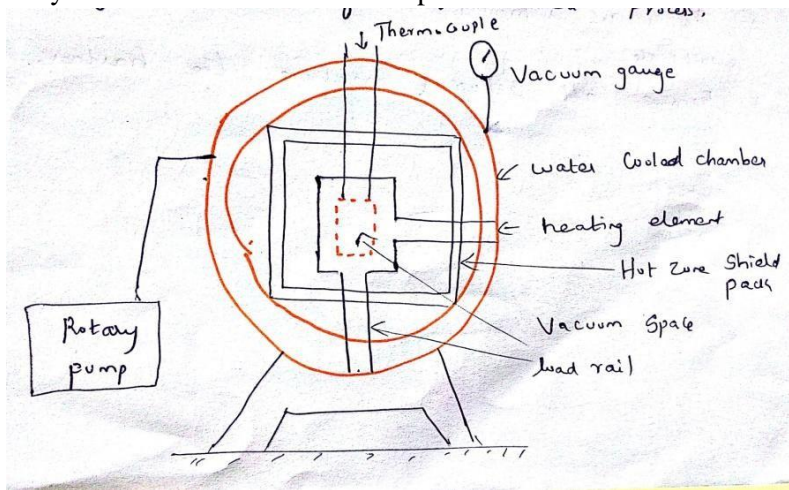 process.
Thermocouple
Vacuum gauge
water Cooled chamber
heating element
Hot Zone Shield
pack
Vacuum Space
load rail
Rotary
pump